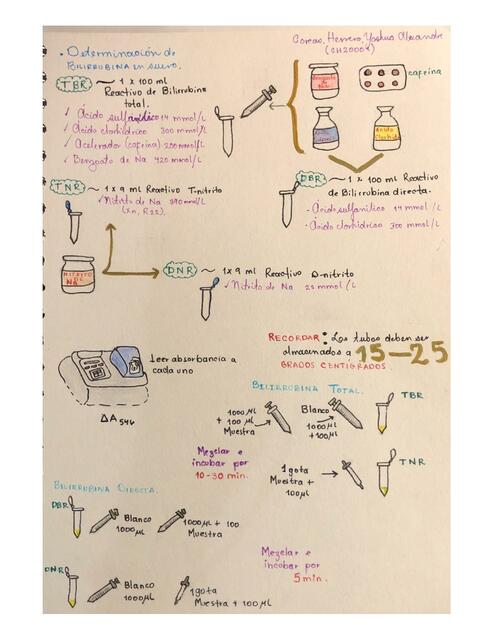 · Determinación de
BILIRRUBINA en suero.
Coreas, Herrera, Yoshua Alexandre
(CH20004)
TBR ~ 1 x 100 ml
Reactivo de Bilirrubina
total.
✓ Ácido sulfanílico 14 mmol/L
✓ Ácido clorhídrico 300 mmol/L
✓ Acelerador (cafeína) 200 mmol/L
✓ Benzoato de Na 420 mmol/L
Benzoato de Na
cafeína
TNR ~ 1 x 9 ml Reactivo T-nitrito
✓ Nitrito de Na 390 mmol/L
(Xn, R22).
DBR ~ 1 x 100 ml Reactivo
de Bilirrubina directa.
· Ácido sulfanílico 14 mmol/L
· Ácido clorhídrico 300 mmol/L
NITRITO
DE
NA
DNR ~ 1x9 ml Reactivo D-nitrito
✓ Nitrito de Na 25 mmol/L
RECORDAR: Los tubos deben ser
almacenados a 15-25
GRADOS CENTIGRADOS
Leer absorbancia a
cada uno
ΔA546
BILIRRUBINA TOTAL.
TBR
1000 µL
+ 100 µL
Muestra
Blanco
1000 µL
+100 µL
Mezclar e
incubar por
10-30 min.
1 gota
Muestra +
100 µL
TNR
BILIRRUBINA DIRECTA.
DBR
Blanco
1000 µL
1000 µL + 100
Muestra
Mezclar e
incubar por
5 min.
DNR
Blanco
1000 µL
1 gota
Muestra + 100 µL